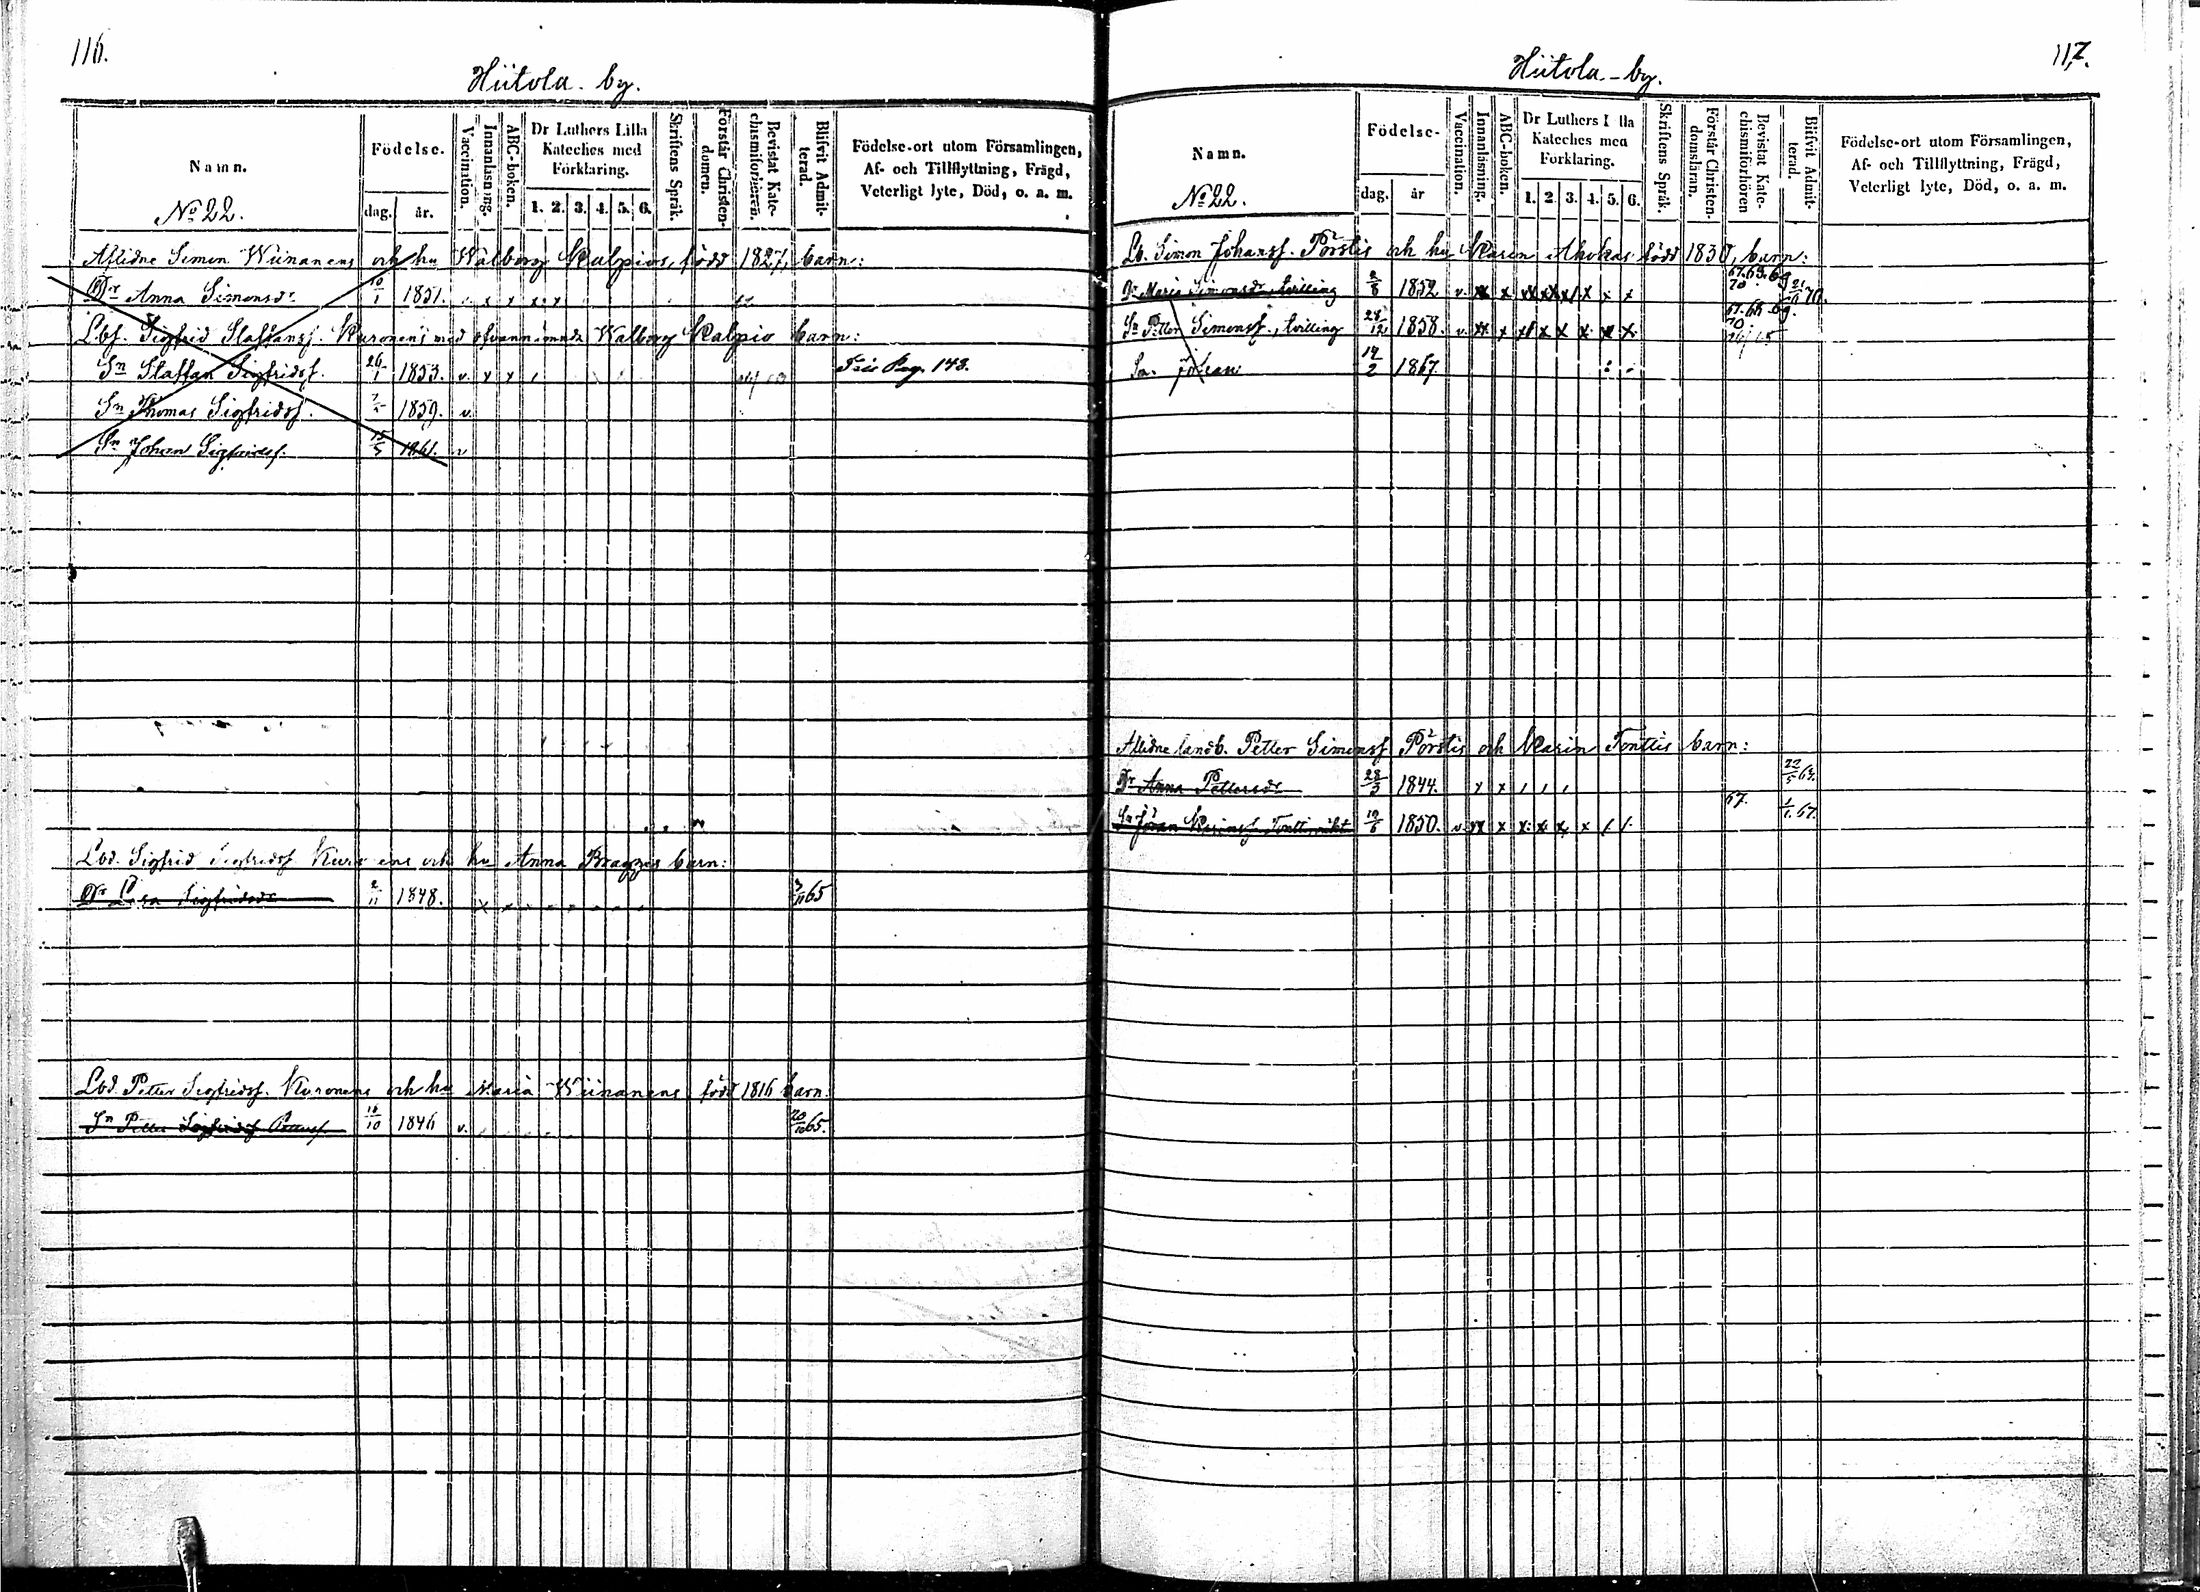 116.
Hiitola - by.
Namn.
No 22.
Födelse.
dag.
år.
Vaccination.
Innanläsning.
ABC-boken.
Dr Luthers Lilla
Kateches med
Förklaring.
1. 2. 3. 4. 5. 6.
Skriftens Språk.
Förstår Christen-
domen.
Bevistat Kate-
chismiförhören.
Blifvit Admit-
terad.
Födelse-ort utom Församlingen,
Af- och Tillflyttning, Frägd,
Veterligt lyte, Död, o. a. m.
Aflidne Simon Wiinanens och hu Walborg Kalpios, född 1827, barn:
Dr Anna Simonsdr 10/1 1851. v x x x x
Lbf. Sigfrid Staffansf. Kuronens med ofvannämnda Walborg Kalpio barn:
Sn Staffan Sigfridsf. 26/1 1853. v x x Pag. 143.
Sn Thomas Sigfridsf. 1859. v.
Sn Johan Sigfridsf. 15/5 1861. v
Lbd. Sigfrid Sigfridsf Kuronens och hu Anna Bragges barn:
Dr Sigfridsdr 2/11 1848. x 65
Lbd. Petter Sigfridsf. Kuronens och hu Maria Wiinanens född 1816 barn:
Sn Petter 16/10 1846 v. 65.
117.
Hiitola - by.
Namn.
No 22.
Födelse-
dag.
år
Vaccination.
Innanläsning.
ABC-boken.
Dr Luthers Lilla
Kateches med
Förklaring.
1. 2. 3. 4. 5. 6.
Skriftens Språk.
Förstår Christen-
domsläran.
Bevistat Kate-
chismiförhören
Blifvit Admit-
terad.
Födelse-ort utom Församlingen,
Af- och Tillflyttning, Frägd,
Veterligt lyte, Död, o. a. m.
Lb. Simon Johansf. Pörstis och hu Karin Ahokas född 1830, barn:
Dr Maria Simonsdr, tvilling 2/8 1852 v. 70.
Sn Petter Simonsf., tvilling 28/12 1858. v.
Sn. Johan 14/2 1867.
Aflidne landb. Petter Simonsf Pörstis och Karin Tonttis barn:
Dr Anna Pettersdr 28/3 1844. x x 22/5 63.
Sn Karinsf. 1850. v. 67. 67.